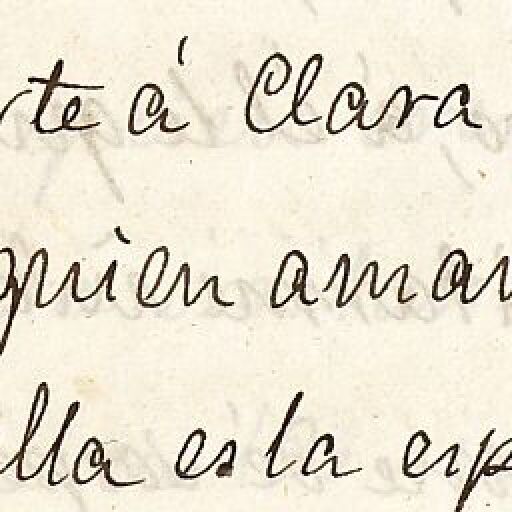 rte á Clara
quien aman
illa es la esp